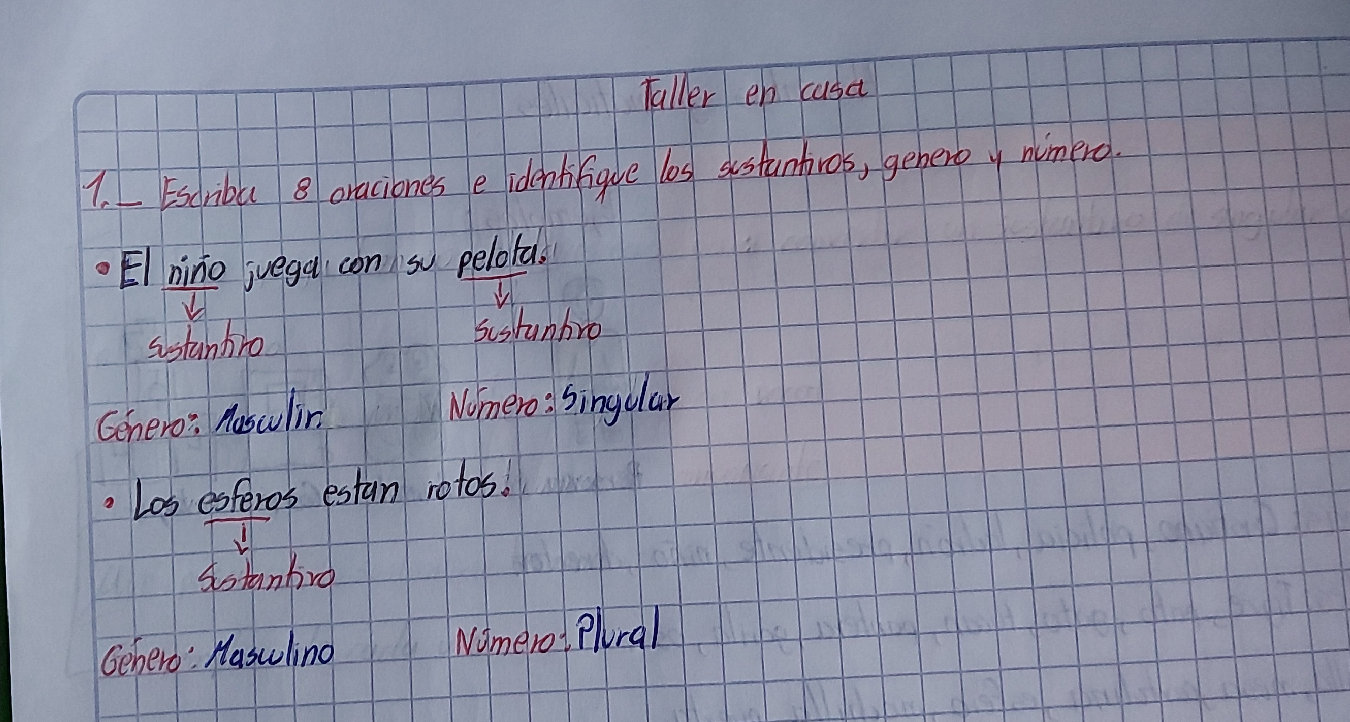 Taller en casa
1.- Escriba 8 oraciones e identifique los sustantivos, genero y número.
• El niño juega con su pelota.
↓ ↓
Sustantivo Sustantivo
Género: Masculin Número: Singular
• Los esferos estan rotos.
↓
Sustantivo
Género: Masculino Número: Plural